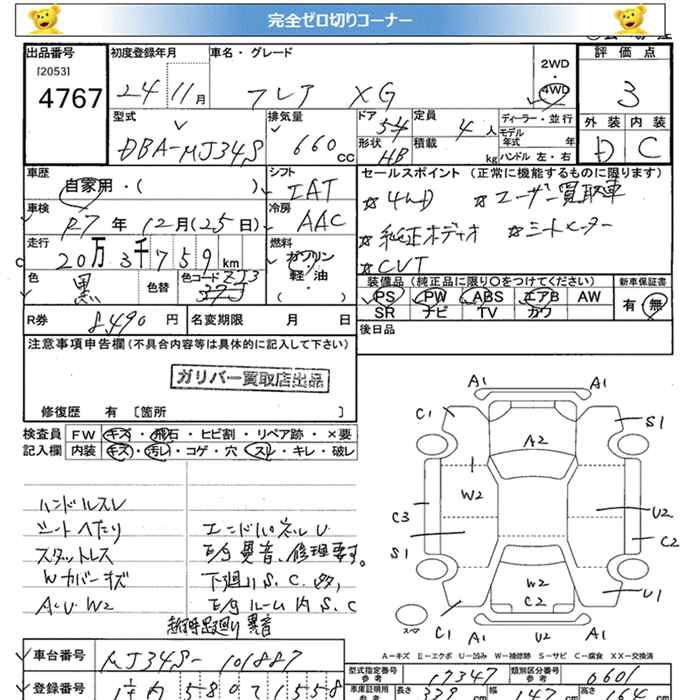 完全ゼロ切りコーナー
出品番号 初度登録年月 車名・グレード 評価点
[2053] 4767 24 11月 フレア XG 2WD 4WD 3
外装 内装
D C
型式 排気量 ドア 定員 ディーラー・並行
DBA-MJ34S 660cc 5 4人 モデル年式 年
形状 HB 積載 kg ハンドル 左・右
車歴 シフト セールスポイント (正常に機能するものに限ります)
自家用・( ) IAT ☆4WD ☆ユーザー買取車
車検 冷房
R7年 12月(25日) AAC ☆純正オーディオ ☆シートヒーター
走行 燃料
20万3千759km ガソリン 軽・油 ( ) ☆CVT
色 黒 色替 色コード ZJ3
装備品 (純正品に限り○をつけてください) 新車保証書
PS PW ABS エアB AW 有 無
SR ナビ TV カワ
R券 8490円 名変期限 月 日 後日品
注意事項申告欄 (不具合内容等は具体的に記入して下さい)
ガリバー買取店出品
修復歴 有 [箇所 ]
検査員 FW キズ・飛石・ヒビ割・リペア跡・×要
記入欄 内装 キズ・汚レ・コゲ・穴・スレ・キレ・破レ
ハンドルスレ
シートヘたり エンドパネルU
スタットレス E/G異音、修理要す。
Wカバーキズ 下廻りS.C.多,
A・U・W2 E/GルームS.C
異音
A1 A1
C1 S1
A2
W2
C3 U2
S1 C2
W2
C2 U1
C1 A1 U2 A1
スペア
A－キズ E－エクボ U－凹み W－補修跡 S－サビ C－腐食 XX－交換済
車台番号 MJ34S-101887 型式指定番号 参考 17347 類別区分番号 参考 6601
登録番号 580 1558 車庫証明用 参考 長さ 339cm 幅 147cm 高さ 164cm